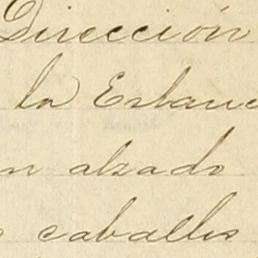 Dirección
la Estanc
n alzado
caballos